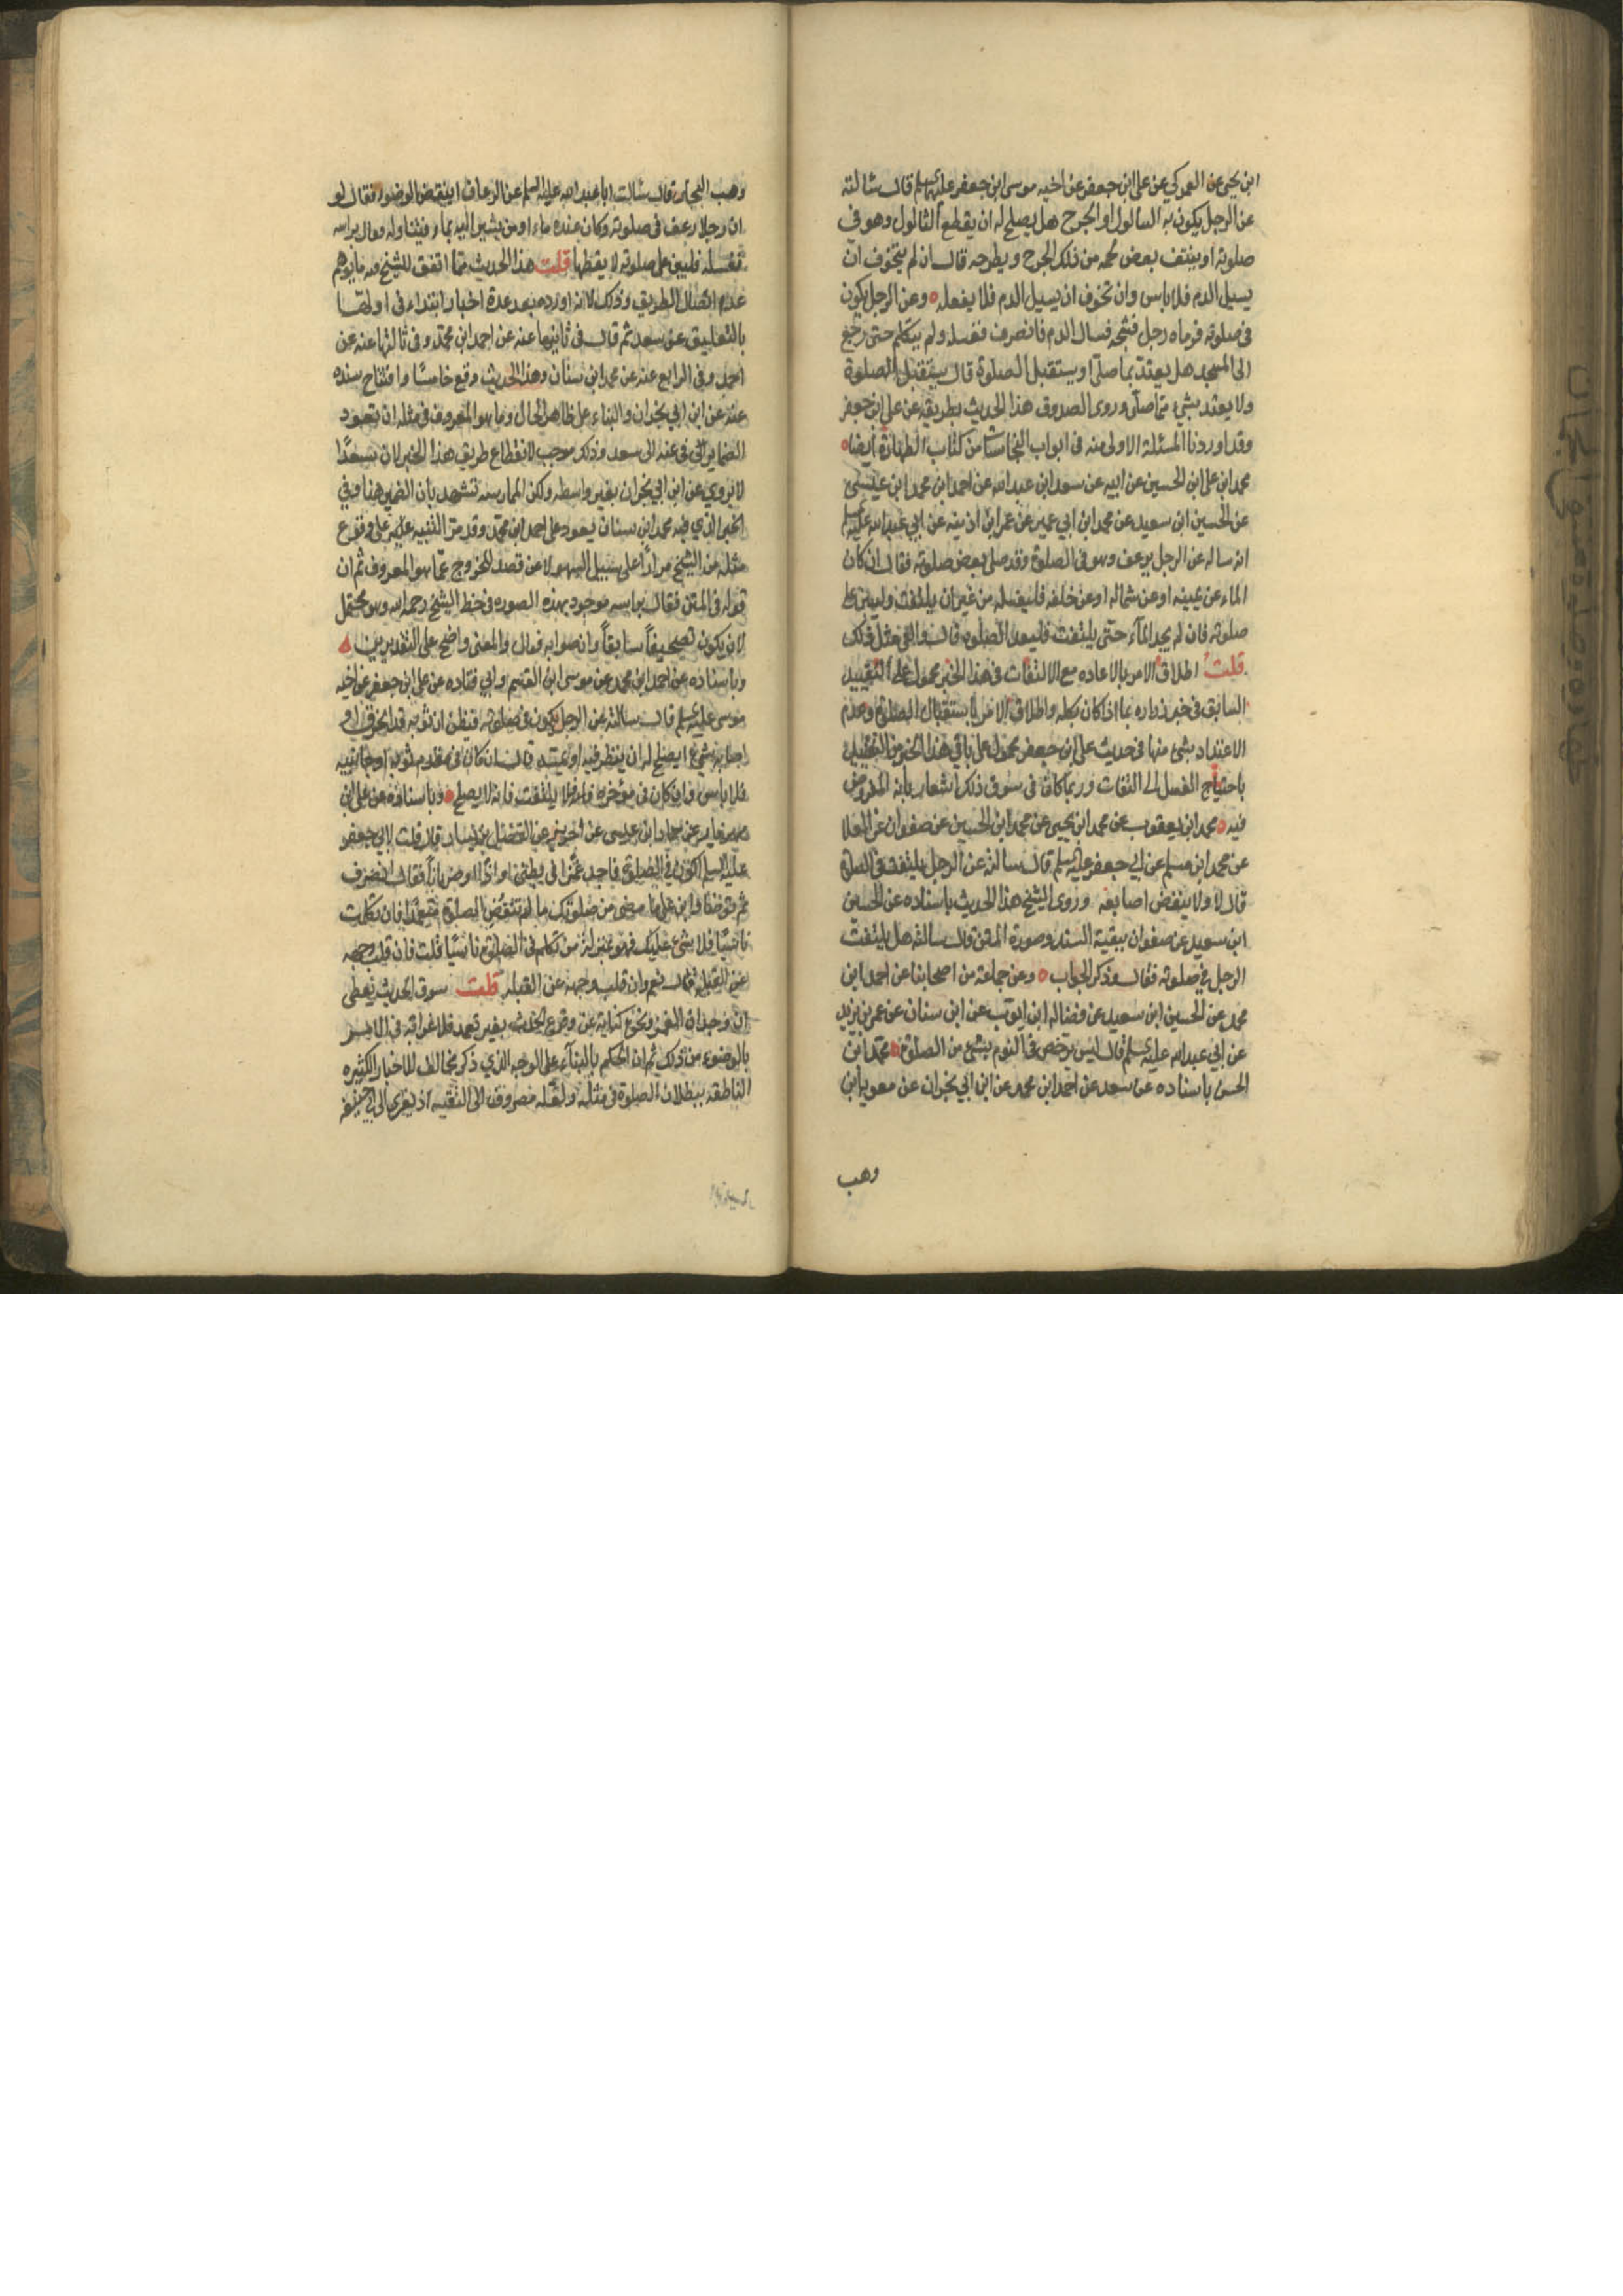 ابن يحيى عن العمركي عن على ابن جعفر عن اخيه موسى ابن جعفر عليهما السلم قال سئالته
عن الرجل يكون به الثالول او الجرح هل يصلح له ان يقطع الثالول وهو فى
صلوته او ينتف بعض لحمه من ذلك الجرح ويطرحه قال ان لم يتخوف ان
يسيل الدم فلا باس وان تخوف ان يسيل الدم فلا يفعله وعن الرجل يكون
فى صلوته فرماه رجل فشجه فسال الدم فانصرف فغسله ولم يتكلم حتى رجع
الى المسجد هل يعتد بما صلى او يستقبل الصلوة قال يستقبل الصلوة
ولا يعتد بشىء مما صلى وروى الصدوق هذا الحديث بطريقه عن على ابن جعفر
وقد اوردنا المسئلة الاولى منه فى ابواب النجاسات من كتاب الطهارة ايضا
محمد ابن على ابن الحسين عن ابيه عن سعد ابن عبد الله عن احمد ابن محمد ابن عيسى
عن الحسين ابن سعيد عن محمد ابن ابي عمير عن عمر ابن اذينه عن ابي عبد الله عليه السلم
انه ساله عن الرجل يرعف وهو فى الصلوة وقد صلى بعض صلوته فقال ان كان
الماء عن يمينه او عن شماله او عن خلفه فليغسله من غير ان يلتفت وليبن على
صلوته فان لم يجد المآء حتى يلتفت فليعد الصلوة قال والقى مثل ذلك
قلت اطلاق الامر بالاعاده مع الالتفات فى هذا الخبر محمول على التقييد
السابق فى خبر زراره بما اذا كان بكله واطلاق الامر باستقبال الصلوة وعدم
الاعتداد بشىء منها فى حديث على ابن جعفر محمول على باقي هذا الخبر من التفصيل
باحتياج الغسل الى التفات وربما كان فى سوق ذلك اشعار بانه المفروض
فيه محمد ابن يعقوب عن محمد ابن يحيى عن محمد ابن الحسين عن صفوان عن العلا
عن محمد ابن مسلم عن ابي جعفر عليه السلم قال سالته عن الرجل يلتفت فى الصلوة
قال لا ولا ينقض اصابعه وروى الشيخ هذا الحديث باسناده عن الحسين
ابن سعيد عن صفوان ببقية السند وصورة المتن قال سالته هل يلتفت
الرجل في صلوته فقال وذكر الجواب وعن جماعة من اصحابنا عن احمد ابن
محمد عن الحسين ابن سعيد عن فضاله ابن ايوب عن ابن سنان عن عمر بن يزيد
عن ابي عبد الله عليه السلم قال ليس يرخص فى النوم بشىء من الصلوة محمد ابن
الحسن باسناده عن سعد عن احمد ابن محمد عن ابن ابي نجران عن معويه ابن
وهب
وهب البجلى قال سئالت ابا عبد الله عليه السلم عن الرعاف اينقض الوضوء فقال لو
ان رجلا رعف فى صلوته وكان عنده ماء او من يشير اليه بماء فيتناوله فمال براسه
فغسله فليبن على صلوته لا يقطعها قلت هذا الحديث مما اتفق للشيخ فيه ما يوهم
عدم اتصال الطريق وذلك لانه اورده بعد عدة اخبار ابتداء فى اولها
بالتعليق عن سعد ثم قال فى ثانيها عنه عن احمد ابن محمد وفى ثالثها عنه عن
احمد وفى الرابع عنه عن محمد ابن سنان وهذا الحديث وقع خامسًا وافتتاح سنده
عنه عن ابن ابي نجران والبناء على ظاهر الحال وما هو المعروف فى مثله ان تعود
الضماير التي فى عنه الى سعد وذلك موجب لانقطاع طريق هذا الخبر لان سعدًا
لا يروي عن ابن ابي نجران بغير واسطه ولكن الممارسه تشهد بان الضمير هنا وفي
الخبر الذي فيه محمد ابن سنان يعود على احمد ابن محمد وقد مر التنبيه عليه على وقوع
مثله من الشيخ مرارًا على سبيل السهو لا عن قصد للخروج عما هو المعروف ثم ان
قوله فى المتن فقال براسه موجود بهذه الصوره فى خط الشيخ رحمه الله وهو محتمل
لان يكون تصحيفاً سابقاً وان صوابه فمال والمعنى واضح على التقديرين
وباسناده عن احمد ابن محمد عن موسى ابن القسم وابي قتاده عن على ابن جعفر عن اخيه
موسى عليه السلم قال سالته عن الرجل يكون فى صلوته فيظن ان ثوبه قد انخرق او
اصابه شىء ايصلح له ان ينظر فيه او يفتشه قال ان كان فى مقدم ثوبه او جانبيه
فلا باس وان كان فى مؤخره فلا يلتفت فانه لا يصلح وباسناده عن على ابن
مهزيار عن حماد ابن عيسى عن حريز عن الفضيل بن يسار قال قلت لابي جعفر
عليه السلم اكون في الصلوة فاجد غمزًا فى بطنى او اذًا او ضرباناً فقال انصرف
ثم توضا وابن على ما مضى من صلوتك ما لم تنقض الصلوة متعمدًا فان تكلمت
ناسيًا فلا شىء عليك فهو بمنزلة من تكلم فى الصلوة ناسيًا قلت فان قلب وجهه
عن القبلة قال نعم وان قلب وجهه عن القبله قلت سوق الحديث يعطى
ان وجدان الغمز ونحوه كناية عن وقوع الحدث بغير تعمد فلا غرابة فى الامر
بالوضوء من ذلك ثم ان الحكم بالبنآء على الوجه الذي ذكر مخالف للاخبار الكثيره
الناطقة ببطلان الصلوة فى مثله ولعله مصروف الى التقيه اذ يعزى الى ابي حنيفه